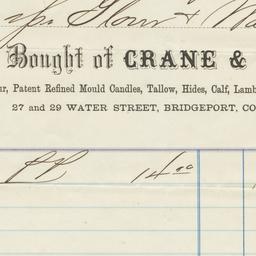 Flour & Wa
Bought of CRANE &
ur, Patent Refined Mould Candles, Tallow, Hides, Calf, Lamb
27 and 29 WATER STREET, BRIDGEPORT, CO
14 00